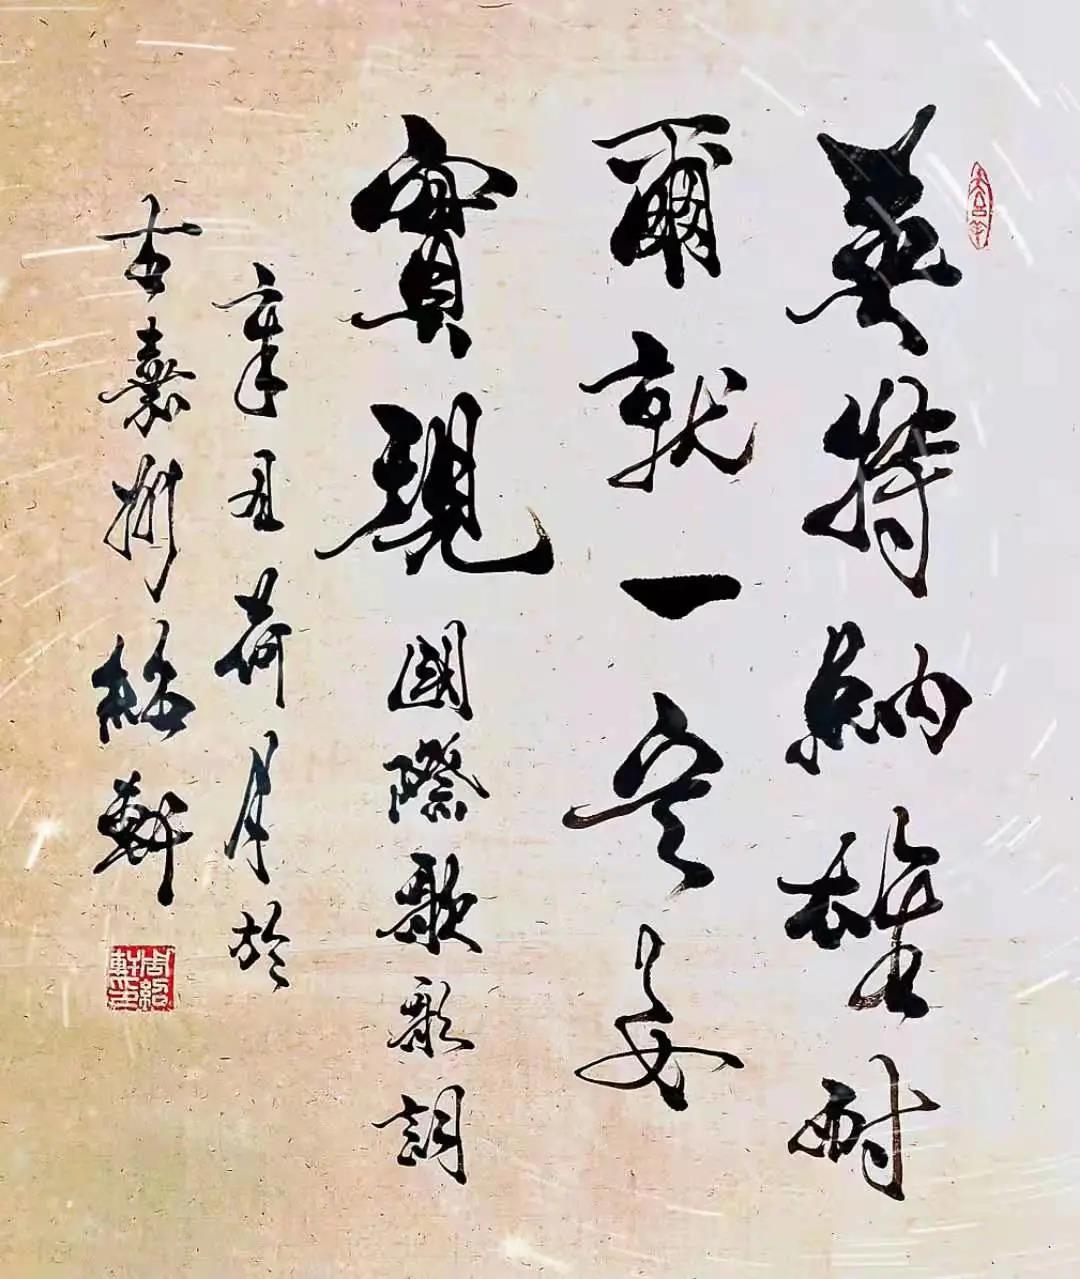 英特納雄耐
爾就一定要
實現國際歌歌詞
辛丑荷月於
古嘉州紹軒
周紹軒印